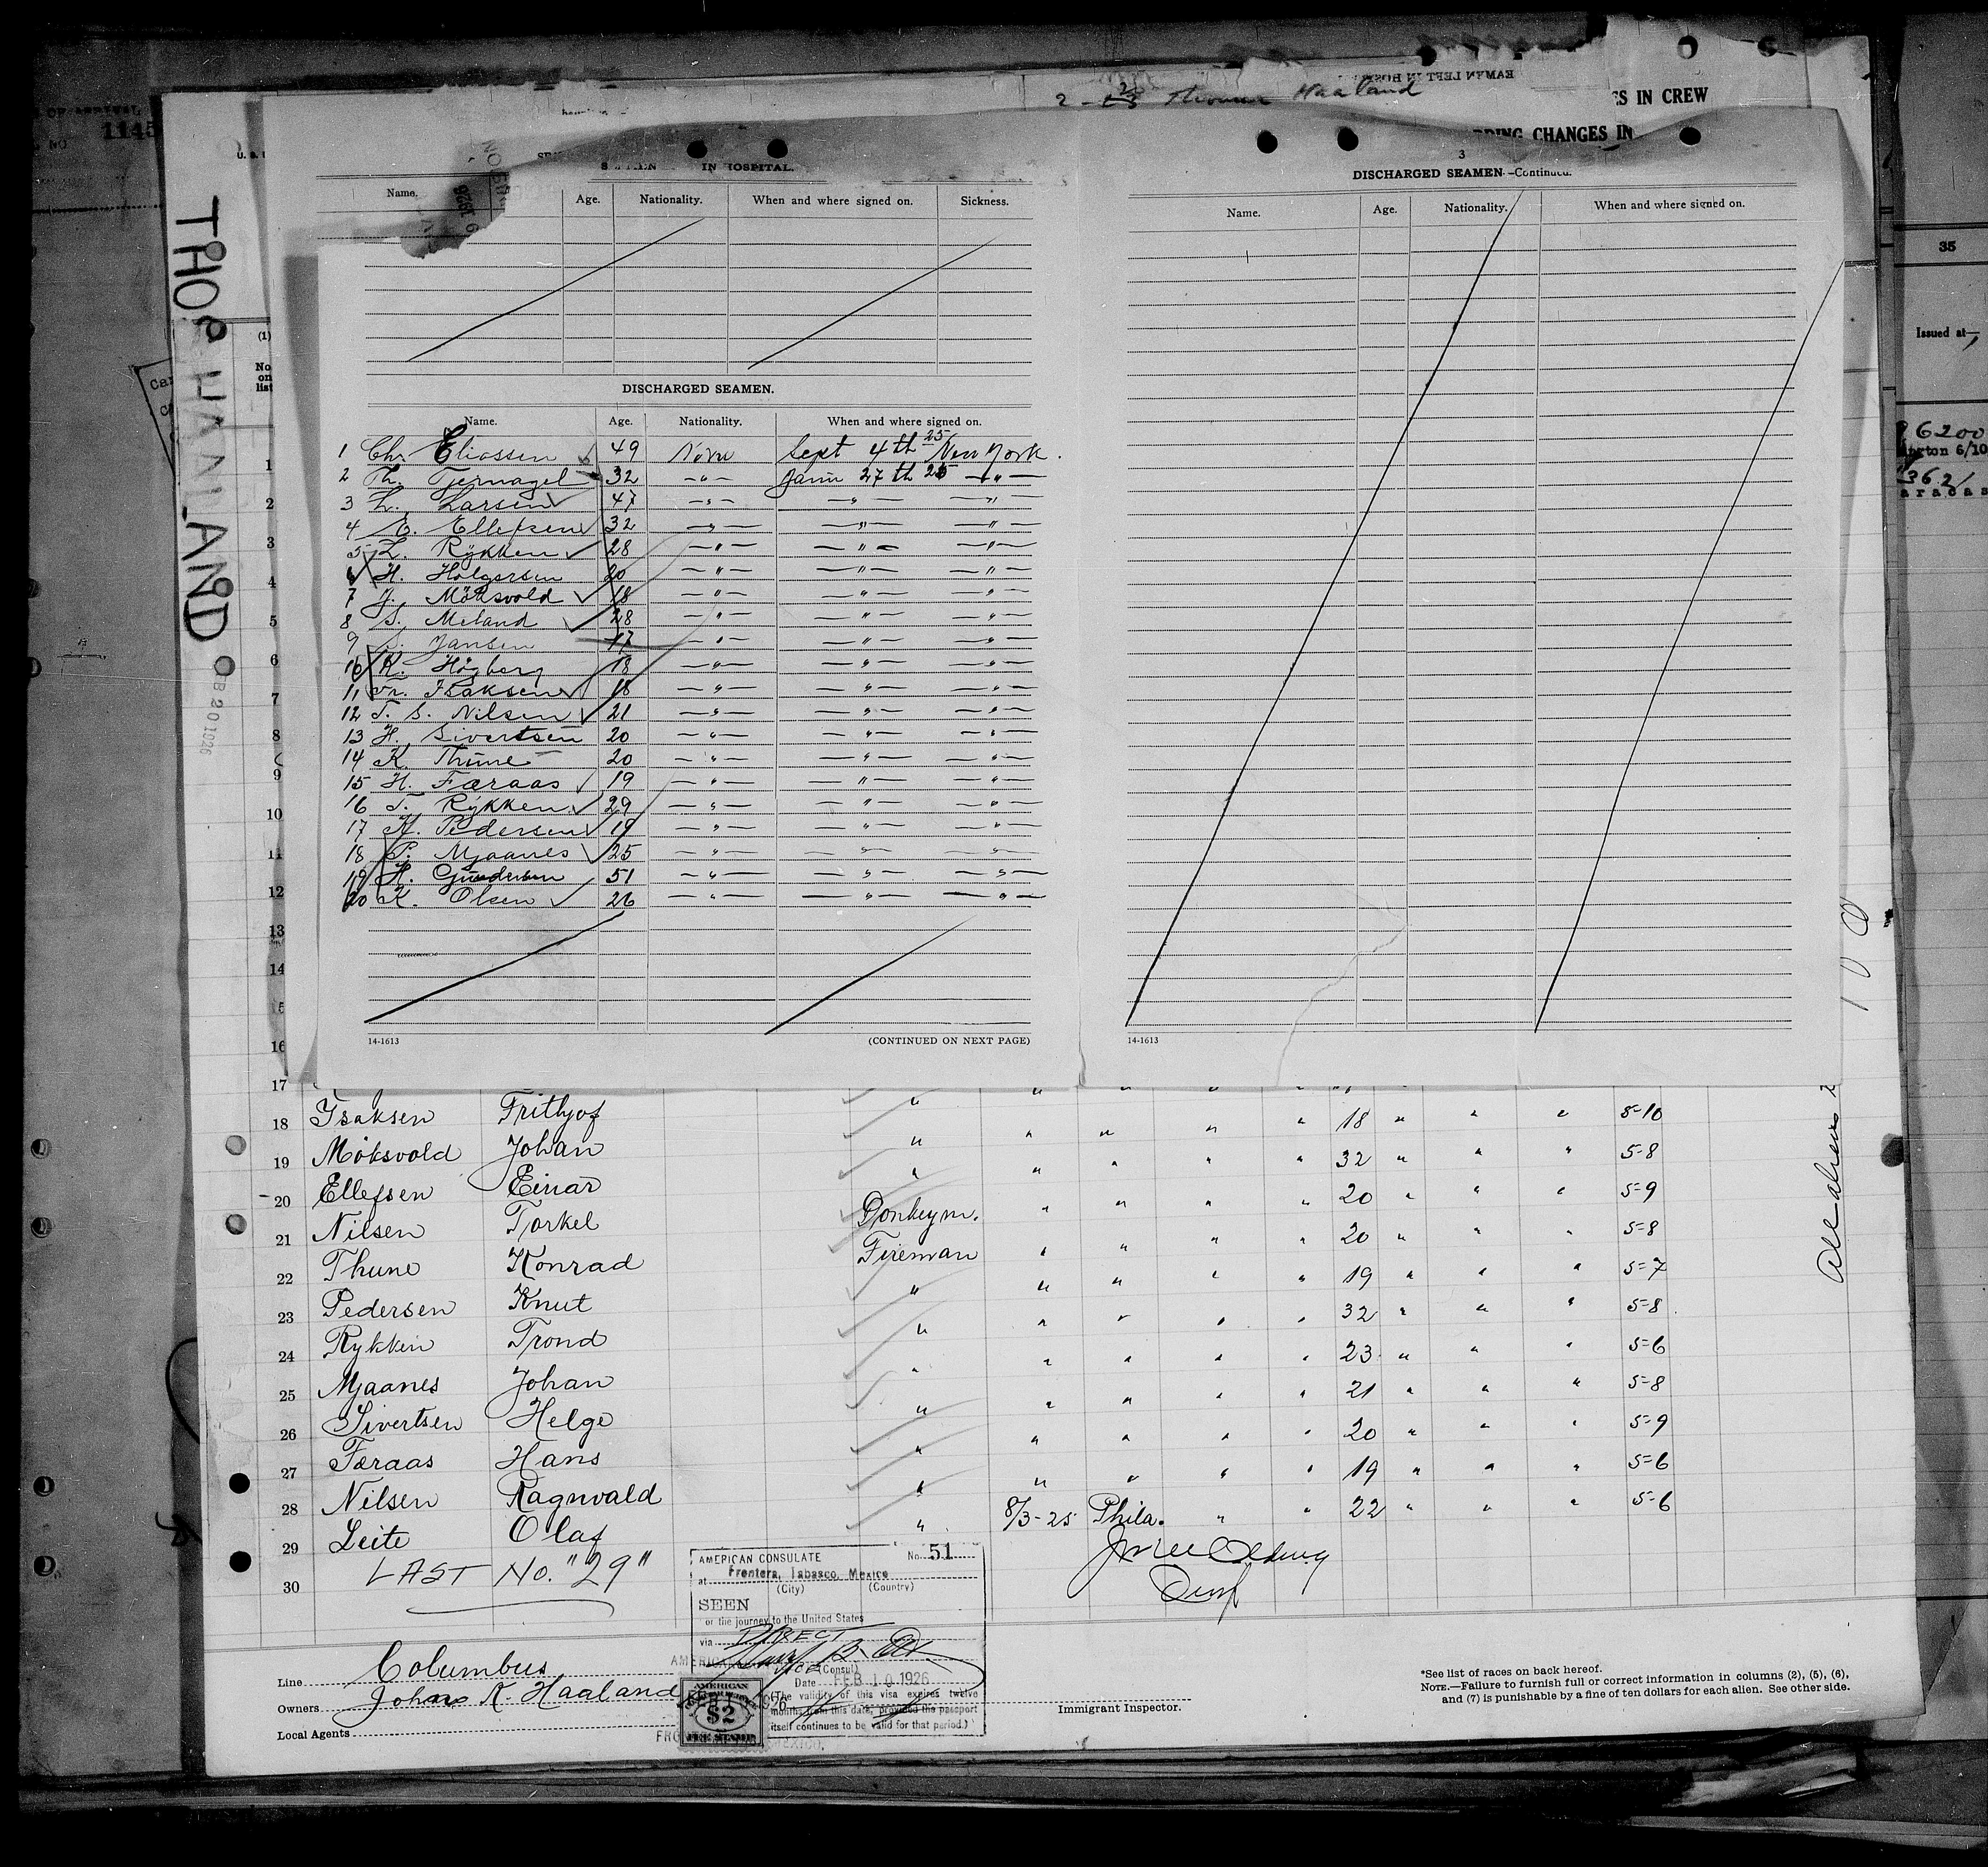 1145
THOR HAALAND
B 20 1926
2 - Thomas Haaland
SEAMAN LEFT IN HOS
ES IN CREW
CHANGES IN
IN HOSPITAL.
Name. Age. Nationality. When and where signed on. Sickness.
DISCHARGED SEAMEN.
Name. Age. Nationality. When and where signed on.
1 Chr. Eliassen 49 Norw Sept 4th 25 New York.
2 Th. Tjernagel 32 —"— Janu 27th 25 —"—
3 L. Larsen 47 —"— —"— —"—
4 E. Ellefsen 32 —"— —"— —"—
5 L. Rykken 28 —"— —"— —"—
6 H. Holgersen 20 —"— —"— —"—
7 J. Möksvold 18 —"— —"— —"—
8 S. Meland 28 —"— —"— —"—
9 S. Jansen 17 —"— —"— —"—
10 K. Högberg 18 —"— —"— —"—
11 Fr. Isaksen 18 —"— —"— —"—
12 T. S. Nilsen 21 —"— —"— —"—
13 H. Sivertsen 20 —"— —"— —"—
14 K. Thune 20 —"— —"— —"—
15 H. Færaas 19 —"— —"— —"—
16 T. Rykken 29 —"— —"— —"—
17 K. Pedersen 19 —"— —"— —"—
18 P. Mjaanes 25 —"— —"— —"—
19 H. Gundersen 51 —"— —"— —"—
20 K. Olsen 26 —"— —"— —"—
14-1613 (CONTINUED ON NEXT PAGE)
3
DISCHARGED SEAMEN.—Continued.
Name. Age. Nationality. When and where signed on.
14-1613
(1)
No. on list
1
2
3
4
5
6
7
8
9
10
11
12
13
14
15
16
17
18 Isaksen Frithjof " " " " " 18 " " " 5-10
19 Möksvold Johan " " " " " 32 " " " 5-8
20 Ellefsen Einar Donkeym. " " " " 20 " " " 5-9
21 Nilsen Torkel Fireman " " " " 20 " " " 5-8
22 Thune Konrad " " " " " 19 " " " 5-7
23 Pedersen Knut " " " " " 32 " " " 5-8
24 Rykken Trond " " " " " 23 " " " 5-6
25 Mjaanes Johan " " " " " 21 " " " 5-8
26 Sivertsen Helge " " " " " 20 " " " 5-9
27 Færaas Hans " " " " " 19 " " " 5-6
28 Nilsen Ragnvald " 8/3-25 Phila. " " 22 " " " 5-6
29 Leite Olaf
30 LAST No. "29"
AMERICAN CONSULATE No. 51
at Frontera, Tabasco, Mexico
(City) (Country)
SEEN
or the journey to the United States
via DIRECT
(Consul)
Date FEB 10 1926
(The validity of this visa expires twelve
months from this date, provided the passport
itself continues to be valid for that period.)
AMERICAN
$2
FEE STAMP
Line Columbus
Owners Johans K. Haaland
Local Agents
Immigrant Inspector.
*See list of races on back hereof.
NOTE.—Failure to furnish full or correct information in columns (2), (5), (6),
and (7) is punishable by a fine of ten dollars for each alien. See other side.
35
Issued at—